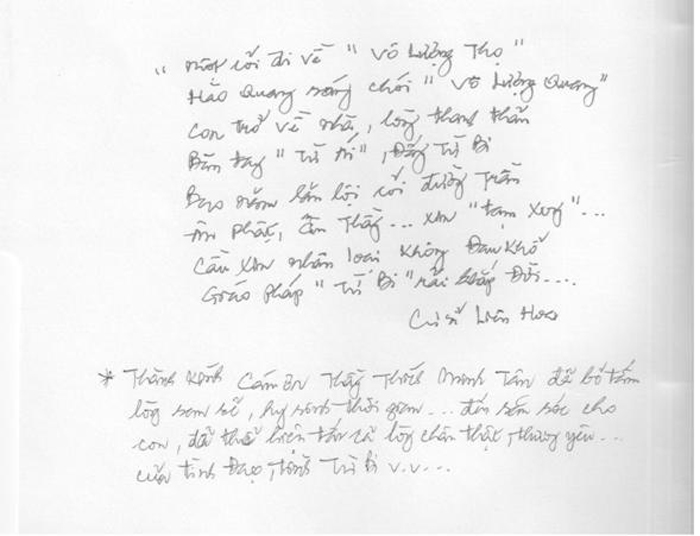 "Một cõi đi về "Vô Lượng Thọ"
Hào Quang sáng chói "Vô Lượng Quang"
Con trở về nhà, lòng thanh thản
Bàn tay "Từ Ái", Đấng Từ Bi
Bao năm lặn lội cõi đường Trần
Ân Phật, Ân Thầy... xin "tam xưng"...
Cầu xin nhân loại không Đau Khổ
Giáo pháp "Từ Bi" rải khắp Đời....
Cư sĩ Liên Hoa
* Thành Kính Cám Ơn Thầy Thích Minh Tân đã bỏ tấm
lòng son sẽ, hy sinh thời gian... đến săn sóc cho
con, đã thể hiện tất cả lòng chân thật, thương yêu...
của tình Đạo, tình Từ Bi v.v...